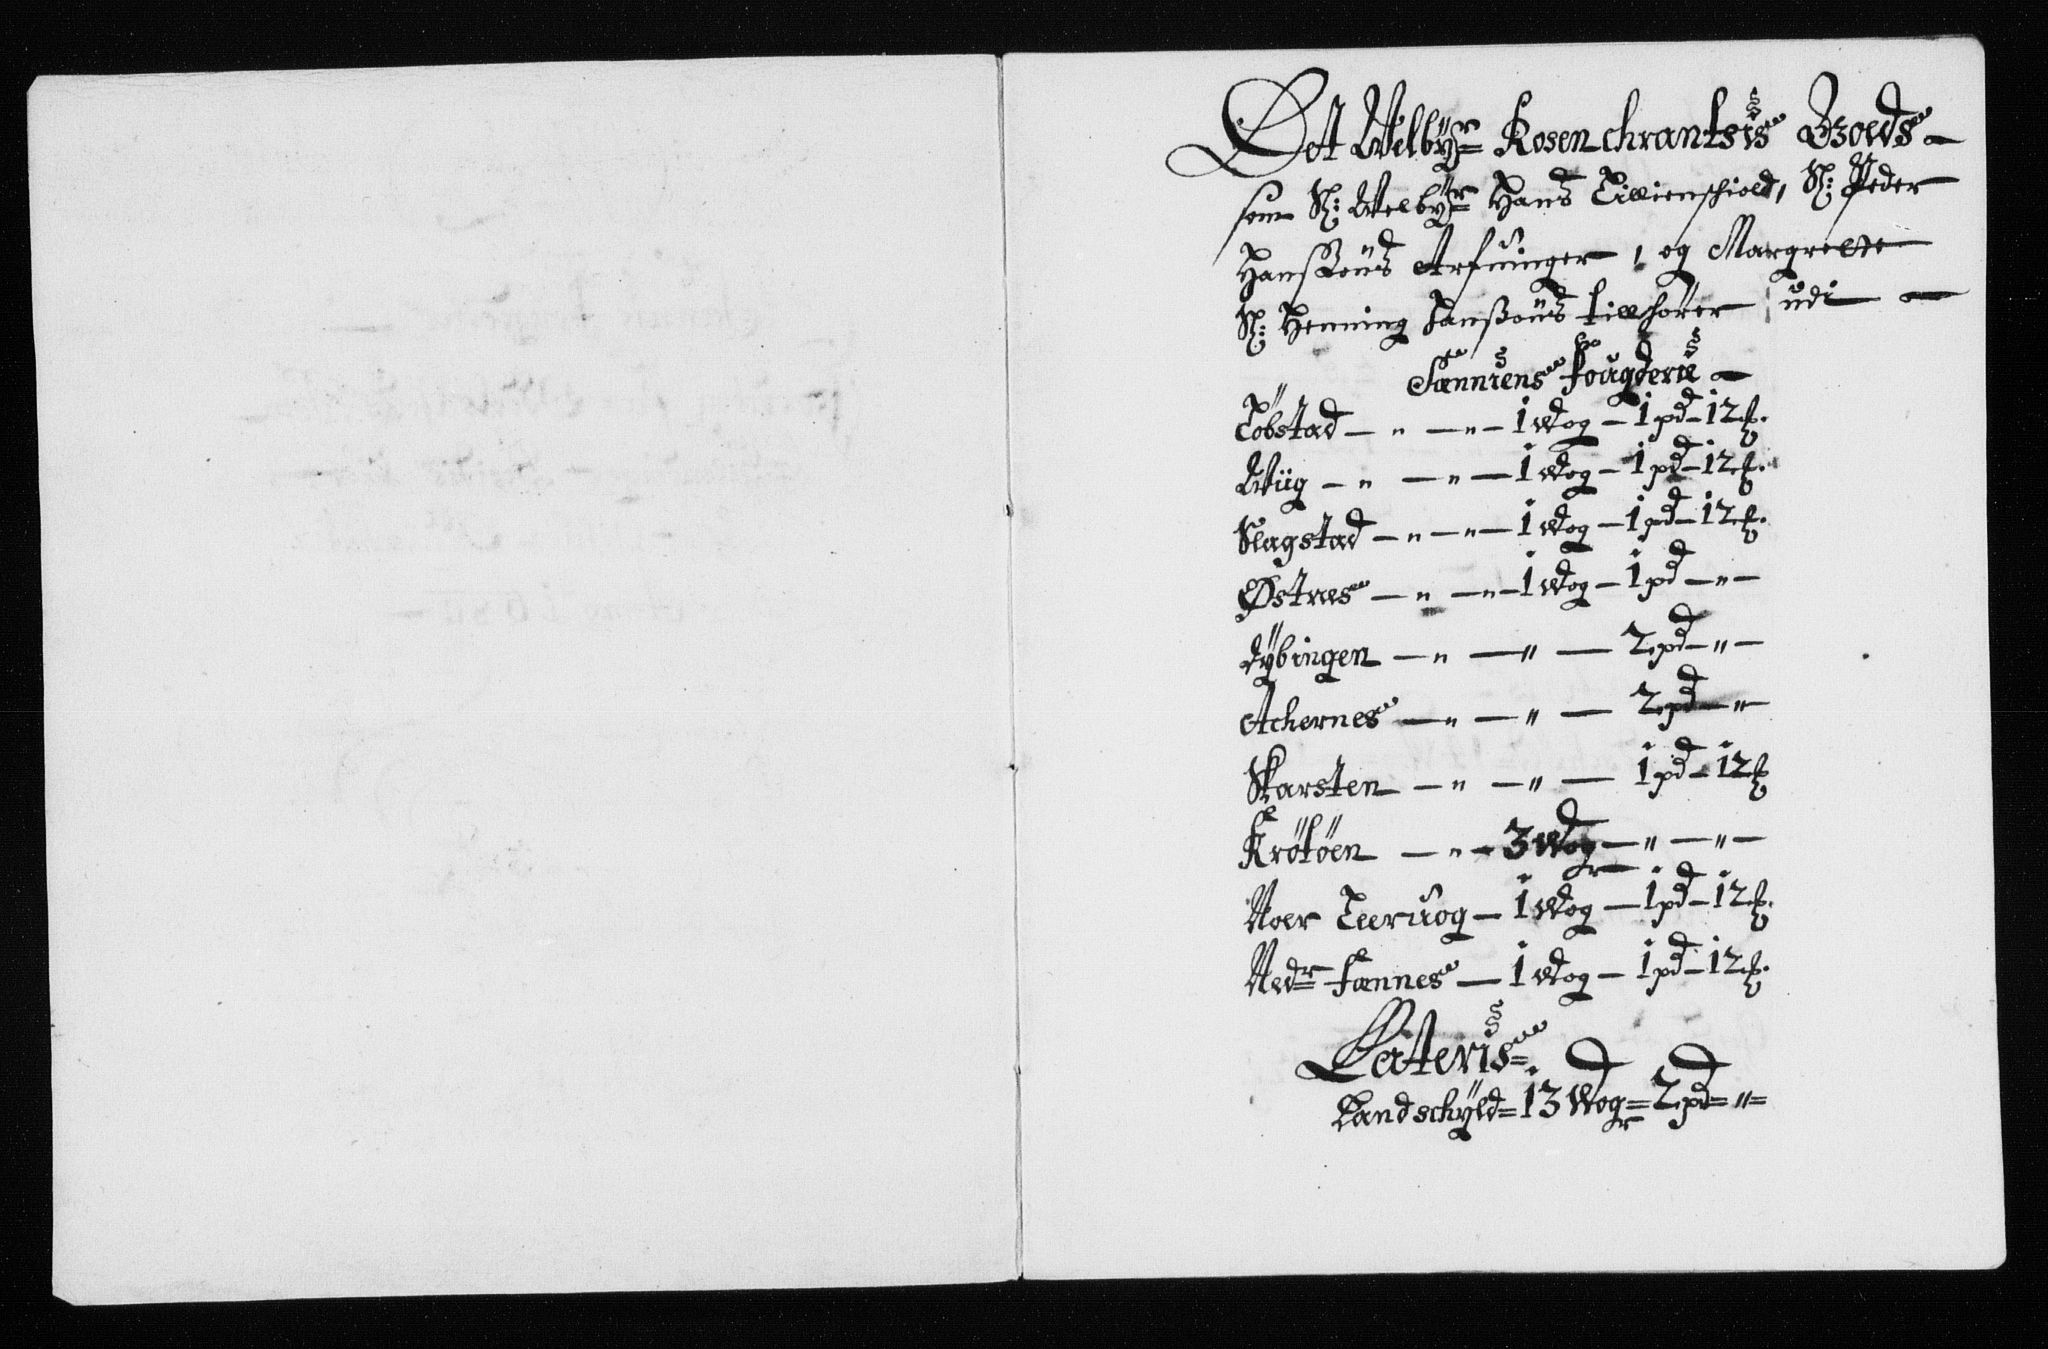 Det Welbÿr Rosenchrantsis Goeds
som Sl: Welbÿr Hans Lillienschiold, Sl: Peder
Hanßøns Arfuinger, og Margrette
Sl: Henning Hanßøns tillhører udi
Sænniens fougderie
Tobstad — " — " — 1 wog — 1 pd — 12 ℔.
Wiig — " — " — 1 wog — 1 pd — 12 ℔.
Slagstad — " — " — 1 wog — 1 pd — 12 ℔.
Østnes — " — " — 1 wog — 1 pd — " —
Dÿbingen — " — " — 2 pd — " —
Achernes — " — " — 2 pd — "
Skarsten — " — " — 1 pd — 12 ℔
Krøtøen — " — 3 wog — " — " —
Noer Teeruog — 1 wog — 1 pd — 12 ℔.
Nedr Fænnes — 1 wog — 1 pd — 12 ℔.
Lateris
Landschÿld = 13 wogr = 2 pd = " =